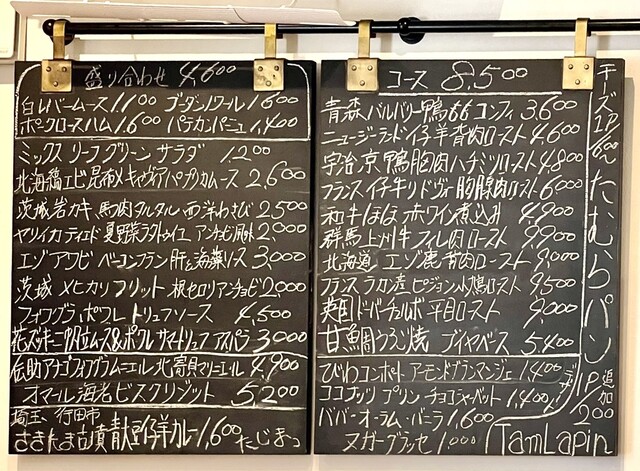 盛り合わせ 4,600
白レバームース 1,100 ゴーダノワール 1,600
ホミクロースハム 1,600 パテカンパーニュ 1,400
ミックス リーフグリーン サラダ 1,200
北海縞エビ 昆布〆 キャヴィア パプリカムース 2,600
茨城岩カキ、馬肉タルタル 西洋わさび 2,500
ヤリイカ ティエド 夏野菜ラタトゥイユ アンチョビ風味 2,000
エゾアワビ ベーコンフラン 肝&海藻ソース 3,000
茨城 メヒカリ フリット 根セロリアンチョビ 2,000
フォワグラ、ポワレ トリュフソース 4,500
花ズッキーニ 帆立ムース&ポワレ サマートリュフ アスパラ 3,000
伝助アナゴ フォワグラムニエル 北寄貝マリニエール 4,900
オマール海老 ビスク リゾット 5,200
埼玉 行田市
さきたま古墳 青大豆 仔羊カレー 1,600 たじまっ
コース 8,500
青森 バルバリー鴨もも コンフィ 3,600
ニュージーランド 仔羊背肉ロースト 4,600
宇治 京鴨胸肉ハチミツロースト 4,800
フランス 仔牛リドヴォー 胸腺肉ロースト 6,000
和牛ほほ 赤ワイン煮込み 4,900
群馬 上州牛フィレ肉ロースト 9,900
北海道 エゾ鹿 背肉ロースト 9,000
フランス ラカン産 ピジョン 小鳩ロースト 9,500
英国ドーバーチュルボ 平目ロースト 9,000
甘鯛うろこ焼 ブイヤベース 5,400
びわコンポート アーモンドブランマンジェ 1,400
ココナッツ プリン チョコシャーベット 1,400
ババ・オ・ラム・バニラ 1,600
ヌガーグラッセ 1,000
チーズ 1P 600〜
たむらパン 1P 追加 200
TamLapin